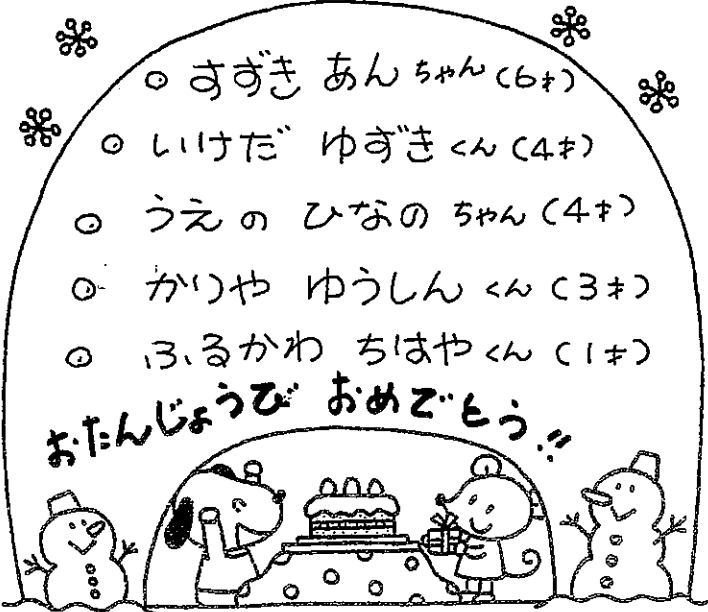 ○ すずき あん ちゃん (6才)
○ いけだ ゆずき くん (4才)
○ うえの ひなの ちゃん (4才)
○ かりや ゆうしん くん (3才)
○ ふるかわ ちはや くん (1才)
おたんじょうび おめでとう!!